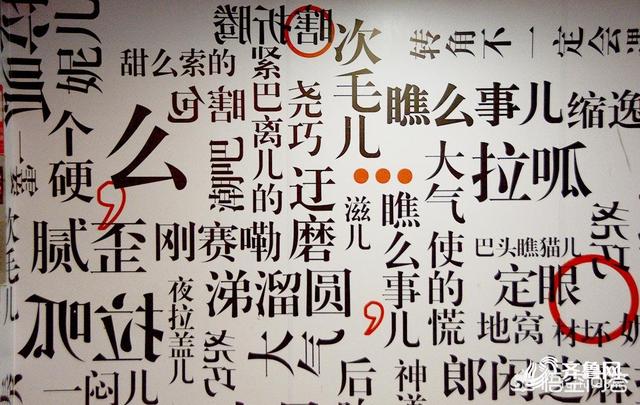 妮儿
瞎折腾
次毛儿
转角不一定会遇
甜么索的
紧巴
离儿的
尧巧
瞎包
瞧么事儿
缩逸
个硬
么
大气
拉呱
迂磨
滋儿
瞧么事儿
使的慌
尧巧
巴头瞧猫儿
次毛儿
腻歪
刚赛
嘞
定眼
夜拉盖儿
涕溜圆
地窝
材坏
拉呱
尧巧
大气
一闷儿
后
神道
郎闲
齐鲁网
悟空问答